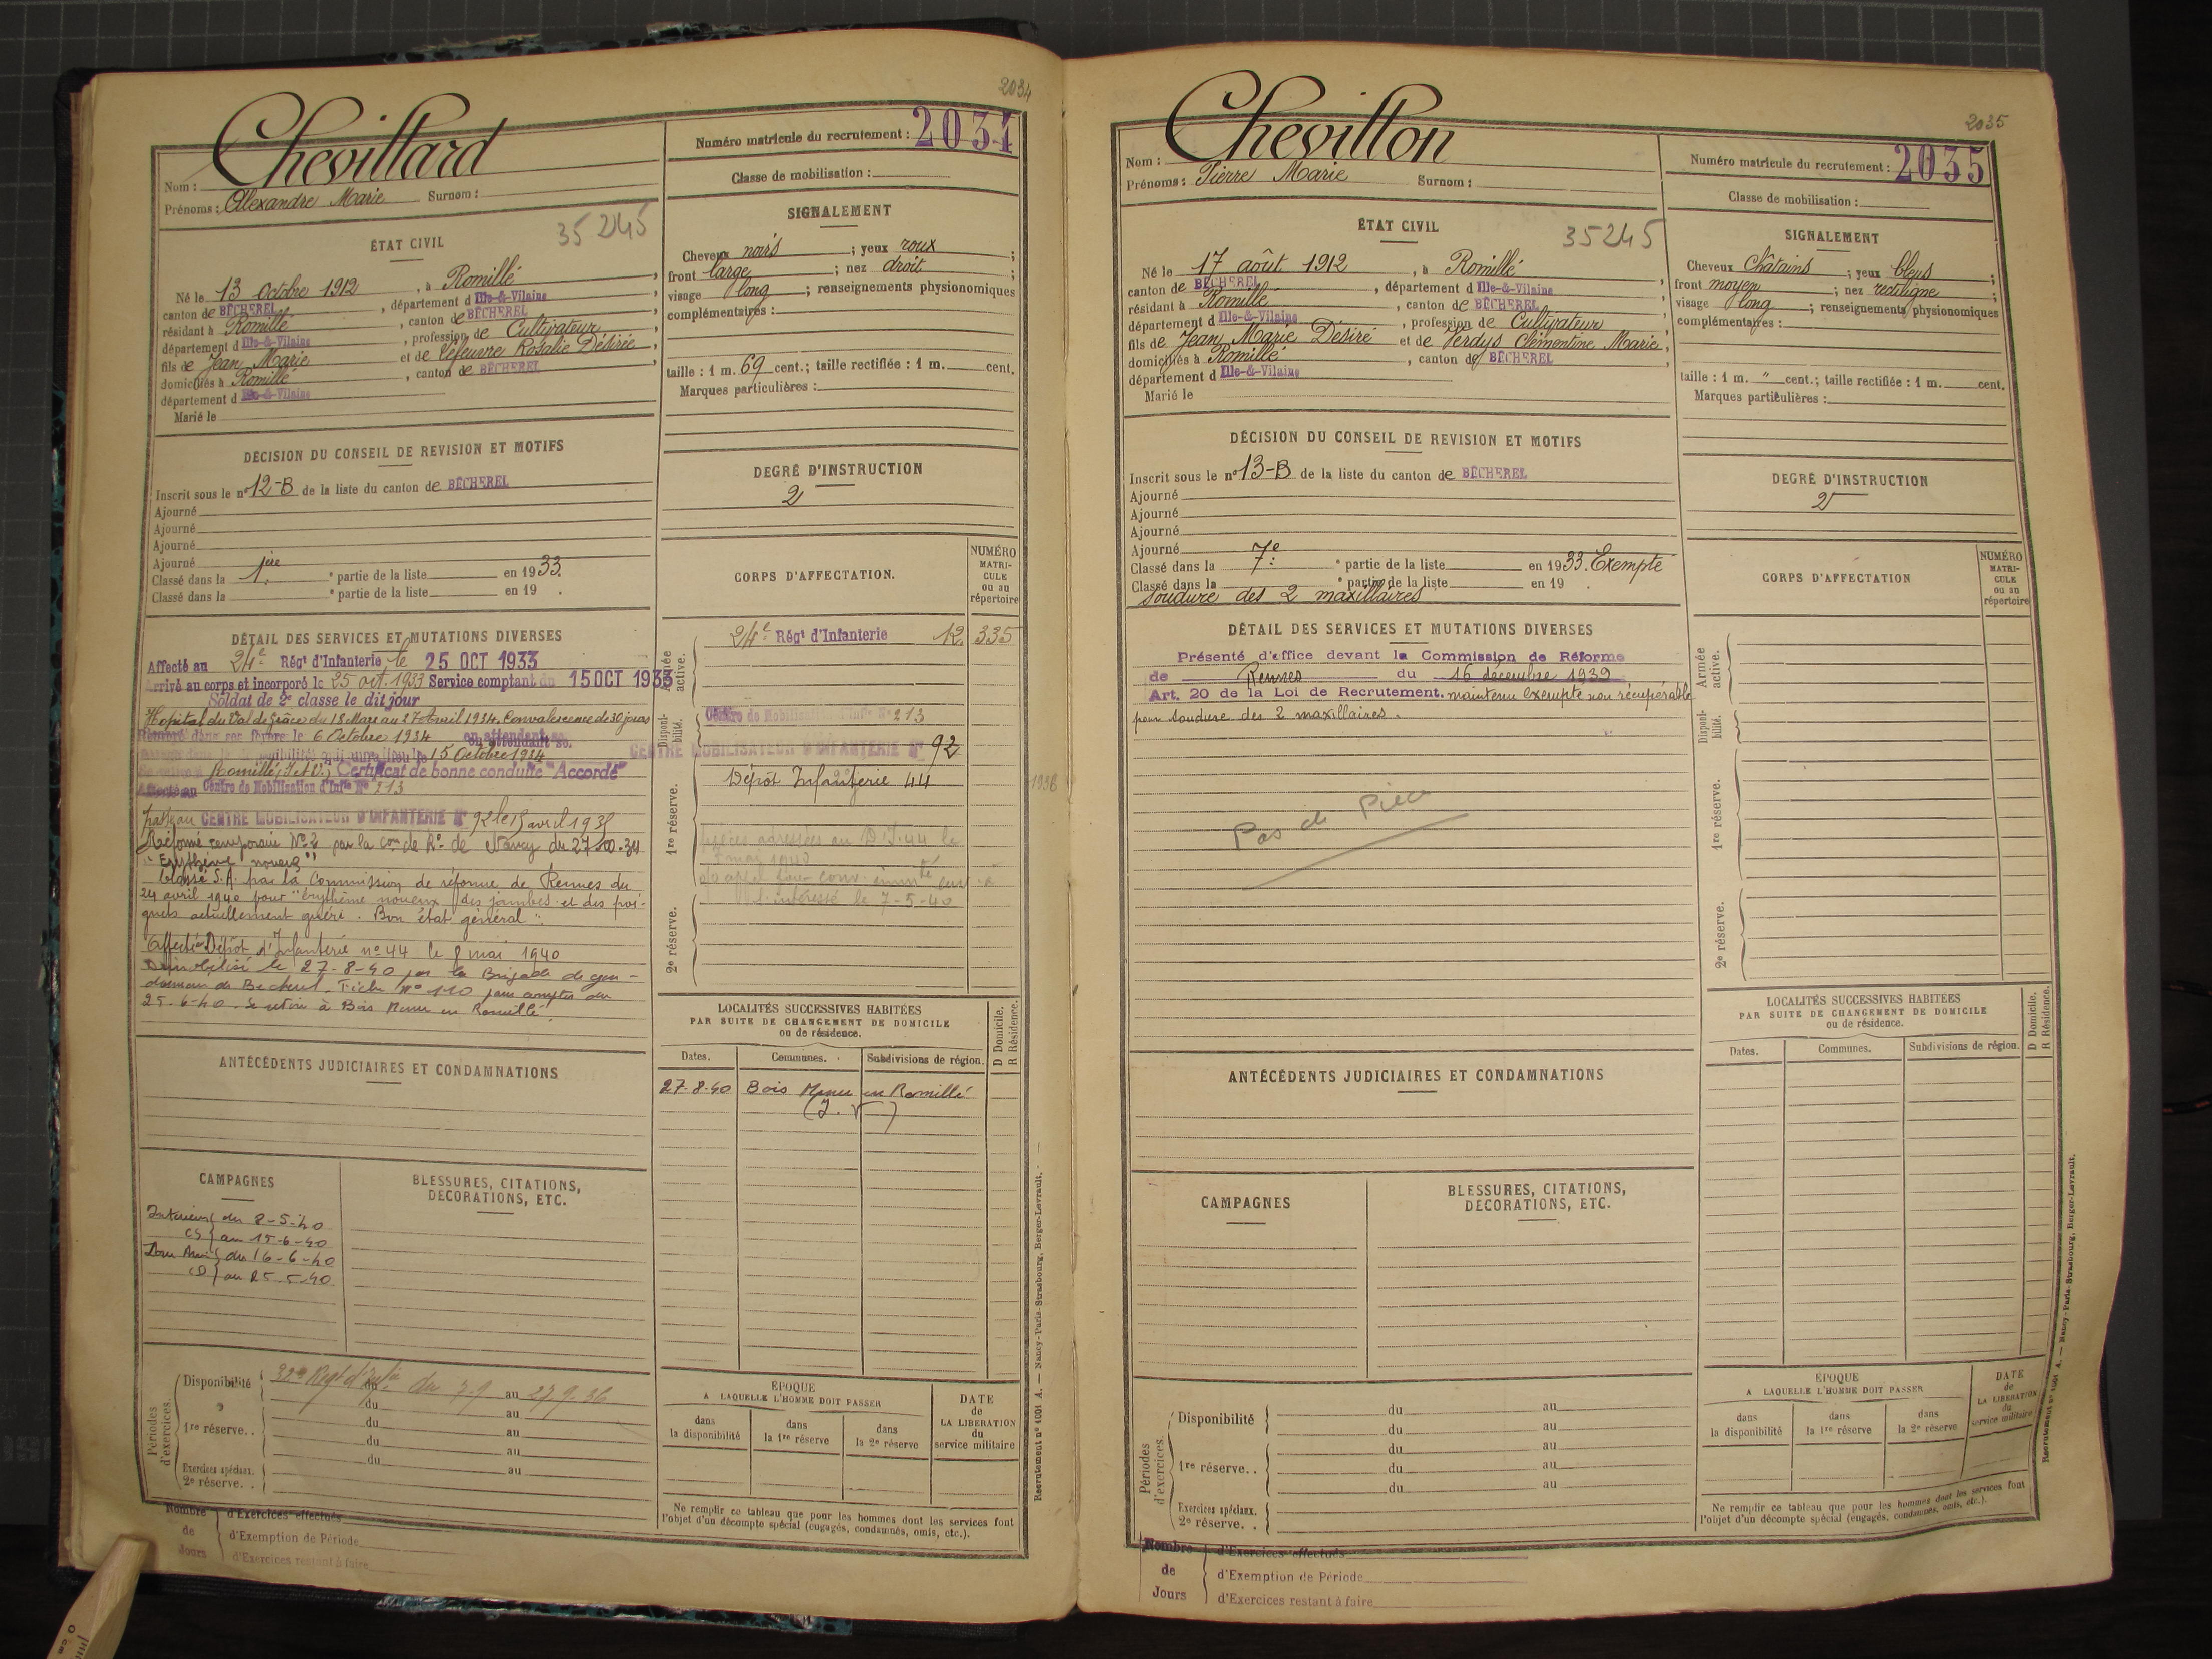 2034
Chevillard
Nom :
Prénoms : Alexandre Marie Surnom :
Numéro matricule du recrutement : 2034
Classe de mobilisation :
ÉTAT CIVIL
35245
Né le 13 octobre 1912, à Romillé,
canton de BÉCHEREL, département d Ille-&-Vilaine,
résidant à Romillé, canton de BÉCHEREL,
département d Ille-&-Vilaine, profession de Cultivateur,
fils de Jean Marie et de Lefeuvre Rosalie Désirée,
domiciliés à Romillé, canton de BÉCHEREL,
département d Ille-&-Vilaine
Marié le
SIGNALEMENT
Cheveux noirs ; yeux roux ;
front large ; nez droit ;
visage long ; renseignements physionomiques
complémentaires :
taille : 1 m. 69 cent. ; taille rectifiée : 1 m. cent.
Marques particulières :
DÉCISION DU CONSEIL DE REVISION ET MOTIFS
Inscrit sous le n° 12-B de la liste du canton de BÉCHEREL
Ajourné
Ajourné
Ajourné
Ajourné
Classé dans la 1ère ° partie de la liste en 1933.
Classé dans la ° partie de la liste en 19 .
DEGRÉ D'INSTRUCTION
2
CORPS D'AFFECTATION.
NUMÉRO MATRI-CULE ou au répertoire
DÉTAIL DES SERVICES ET MUTATIONS DIVERSES
Affecté au 24e Régt d'Infanterie le 25 OCT 1933
Arrivé au corps et incorporé le 25 oct. 1933 Service comptant du 15 OCT 1933
Soldat de 2e classe le dit jour
Hopital du Val de Grâce du 18 Mars au 27 Avril 1934. Convalescence de 30 jours
dans ses foyers le 6 Octobre 1934 en attendant so.
disponibilité qui aura lieu le 15 Octobre 1934
Romillé, (I.et V.) Certificat de bonne conduite "Accordé"
Affecté au Centre de Mobilisation d'Infie N° 213
passé au CENTRE MOBILISATEUR D'INFANTERIE N° 92 le 15 avril 193
Réformé temporaire N° 2 par la con de Re de Nancy du 27
"Erythème noueux"
Classé S.A. par la Commission de réforme de Rennes du
24 avril 1940 pour "érythème noueux des jambes et des poi-
gnets actuellement guéri. Bon état général".
Affecté Dépôt d'Infanterie n° 44 le 8 mai 1940
Démobilisé le 27-8-40 par la Brigade de gen-
darmerie de Bécherel. Fiche N° 110 pour compter du
25-6-40. Se retire à Bois Menu en Romillé.
Armée active.
24e Régt d'Infanterie 12.335
Disponi-bilité.
Centre de Mobilisation d'Infie N° 213
CENTRE MOBILISATEUR D'INFANTERIE N° 92
1re réserve.
Dépôt Infanterie 44
1938
Pièces adressées au D I-44 le
mai 1940
l'intéressé le 7-5-40
2e réserve.
ANTÉCÉDENTS JUDICIAIRES ET CONDAMNATIONS
LOCALITÉS SUCCESSIVES HABITÉES
PAR SUITE DE CHANGEMENT DE DOMICILE
ou de résidence.
D Domicile.
R Résidence.
Dates. Communes. Subdivisions de région.
27-8-40 Bois Menu en Romillé
(I. V)
CAMPAGNES
BLESSURES, CITATIONS,
DECORATIONS, ETC.
Intérieur du 8-5-40
CS au 15-6-40
du 16-6-40
au 25-5-40
Périodes d'exercices.
Disponibilité 32e Regt d'Infie du 7.9 au 27.9.36
du au
1re réserve. . du au
du au
du au
Exercices spéciaux. au
2e réserve. .
ÉPOQUE
A LAQUELLE L'HOMME DOIT PASSER
dans la disponibilité
dans la 1re réserve
dans la 2e réserve
DATE de LA LIBERATION du service militaire
Ne remplir ce tableau que pour les hommes dont les services font
l'objet d'un décompte spécial (engagés, condamnés, omis, etc.).
Nombre de Jours
d'Exercices effectués
d'Exemption de Période
d'Exercices restant à faire
Recrutement n° 1001 A. — Nancy-Paris-Strasbourg, Berger-Levrault.
2035
Chevillon
Nom :
Prénoms : Pierre Marie Surnom :
Numéro matricule du recrutement : 2035
Classe de mobilisation :
ÉTAT CIVIL
35245
Né le 17 août 1912, à Romillé,
canton de BÉCHEREL, département d Ille-&-Vilaine,
résidant à Romillé, canton de BÉCHEREL,
département d Ille-&-Vilaine, profession de Cultivateur,
fils de Jean Marie Désiré et de Verdys Clémentine Marie,
domiciliés à Romillé, canton de BÉCHEREL,
département d Ille-&-Vilaine
Marié le
SIGNALEMENT
Cheveux Châtains ; yeux bleus ;
front moyen ; nez rectiligne ;
visage long ; renseignements physionomiques
complémentaires :
taille : 1 m. " cent. ; taille rectifiée : 1 m. cent.
Marques particulières :
DÉCISION DU CONSEIL DE REVISION ET MOTIFS
Inscrit sous le n° 13-B de la liste du canton de BÉCHEREL
Ajourné
Ajourné
Ajourné
Ajourné
Classé dans la 7e ° partie de la liste en 1933. Exempté
Classé dans la ° partie de la liste en 19 .
Soudure des 2 maxillaires
DEGRÉ D'INSTRUCTION
2
CORPS D'AFFECTATION
NUMÉRO MATRI-CULE ou au répertoire
DÉTAIL DES SERVICES ET MUTATIONS DIVERSES
Présenté d'office devant la Commission de Réforme
de Rennes du 16 décembre 1939
Art. 20 de la Loi de Recrutement. maintenu exempté non récupérable
pour soudure des 2 maxillaires.
Pas de Pièce
Armée active.
Disponi-bilité.
1re réserve.
2e réserve.
ANTÉCÉDENTS JUDICIAIRES ET CONDAMNATIONS
LOCALITÉS SUCCESSIVES HABITÉES
PAR SUITE DE CHANGEMENT DE DOMICILE
ou de résidence.
D Domicile.
R Résidence.
Dates. Communes. Subdivisions de région.
CAMPAGNES
BLESSURES, CITATIONS,
DÉCORATIONS, ETC.
Périodes d'exercices.
Disponibilité du au
du au
1re réserve. . du au
du au
du au
Exercices spéciaux.
2e réserve. .
ÉPOQUE
A LAQUELLE L'HOMME DOIT PASSER
dans la disponibilité
dans la 1re réserve
dans la 2e réserve
DATE de LA LIBERATION du service militaire
Ne remplir ce tableau que pour les hommes dont les services font
l'objet d'un décompte spécial (engagés, condamnés, omis, etc.).
Nombre de Jours
d'Exercices effectués
d'Exemption de Période
d'Exercices restant à faire
Recrutement n° 1001 A. — Nancy-Paris-Strasbourg, Berger-Levrault.